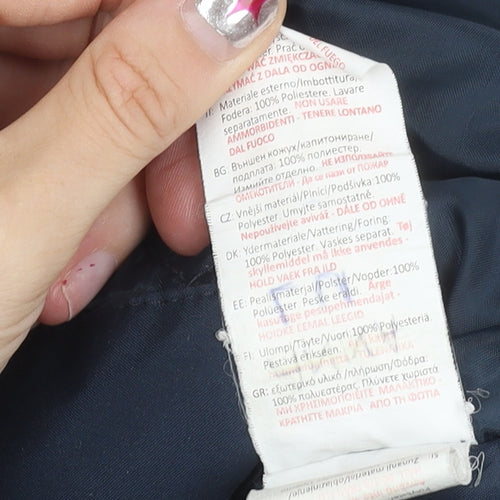 DEL FUEGO
WAĆ ZMIĘKCZA
TRZYMAĆ Z DALA OD OGN
IT: Materiale esterno/Imbottitura/
Fodera: 100% Poliestere. Lavare
separatamente. NON USARE
AMMORBIDENTI - TENERE LONTANO
DAL FUOCO
BG: Външен кожух/капитониране/
подплата: 100% полиестер.
Измийте отделно. НЕ ИЗПОЛЗВАЙТЕ
ОМЕКОТИТЕЛИ - Да се пази от ПОЖАР
CZ: Vnější materiál/Plnicí/Podšívka:100%
Polyester. Umyjte samostatně.
Nepoužívejte aviváž - DÁLE OD OHNĚ
DK: Ydermateriale/Vattering/Foring:
100% Polyester. Vaskes separat. Tøj
skyllemiddel må ikke anvendes -
HOLD VAEK FRA ILD
EE: Pealismaterjal/Polster/Vooder:100%
Polüester. Peske eraldi. Ärge
kasutage pesupehmendajat -
HOIDKE EEMAL LEEGID.
FI: Ulompi/Täyte/Vuori:100% Polyesteriä.
Pestävä erikseen.
GR: εξωτερικό υλικό /πλήρωση/Φόδρα:
100% πολυεστέρας. Πλύνετε χωριστά
ΜΗ ΧΡΗΣΙΜΟΠΟΙΕΙΤΕ ΜΑΛΑΚΤΙΚΟ -
ΚΡΑΤΗΣΤΕ ΜΑΚΡΙΑ ΑΠΟ ΤΗ ΦΩΤΙΑ